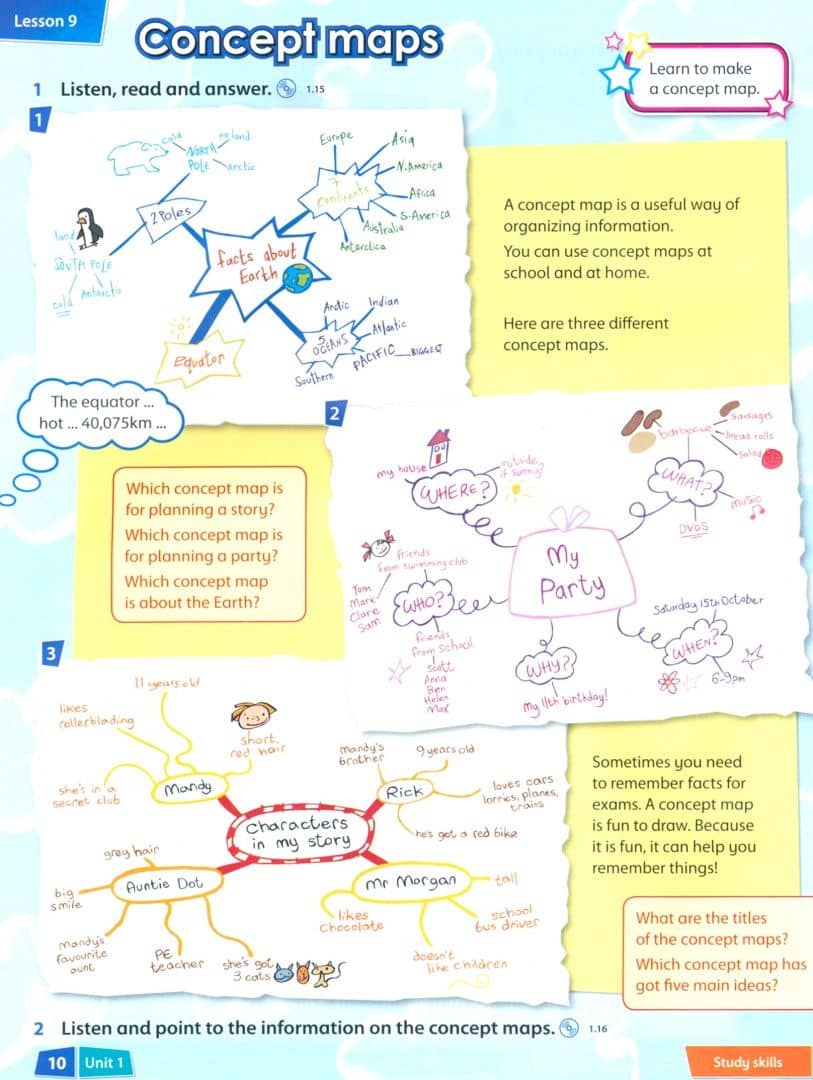 Lesson 9
Concept maps
Learn to make
a concept map.
1 Listen, read and answer. 1.15
1
facts about
Earth
2 Poles
cold
NORTH
POLE
no land
Arctic
land
SOUTH POLE
cold
Antarctic
7
continents
Europe
Asia
N.America
Africa
S.America
Australia
Antarctica
5
OCEANS
Arctic
Indian
Atlantic
PACIFIC BIGGEST
Southern
equator
A concept map is a useful way of
organizing information.
You can use concept maps at
school and at home.
Here are three different
concept maps.
The equator ...
hot ... 40,075km ...
Which concept map is
for planning a story?
Which concept map is
for planning a party?
Which concept map
is about the Earth?
2
My
Party
WHERE?
my house
outside?
if sunny?
WHAT?
barbecue
sausages
bread rolls
salad
music
DVDS
WHO?
friends
from swimming club
Tom
Mark
Clare
Sam
friends
from school
Scott
Anna
Ben
Helen
Max
WHY?
my 11th birthday!
WHEN?
Saturday 15th October
6-9pm
3
Characters
in my story
Mandy
11 years old
likes
rollerblading
short,
red hair
she's in a
secret club
Rick
mandy's
brother
9 years old
loves cars
lorries, planes,
trains
he's got a red bike
Auntie Dot
grey hair
big
smile
mandy's
favourite
aunt
PE
teacher
she's got
3 cats
Mr Morgan
tall
school
bus driver
likes
chocolate
doesn't
like children
Sometimes you need
to remember facts for
exams. A concept map
is fun to draw. Because
it is fun, it can help you
remember things!
What are the titles
of the concept maps?
Which concept map has
got five main ideas?
2 Listen and point to the information on the concept maps. 1.16
10 Unit 1
Study skills